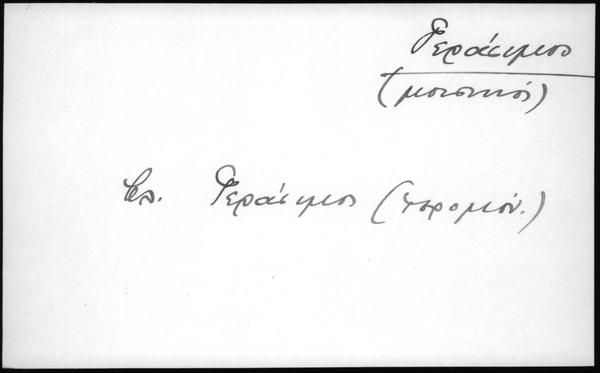 Γεράσιμος
(μουσικός)
βλ. Γεράσιμος (ιερομόν.)